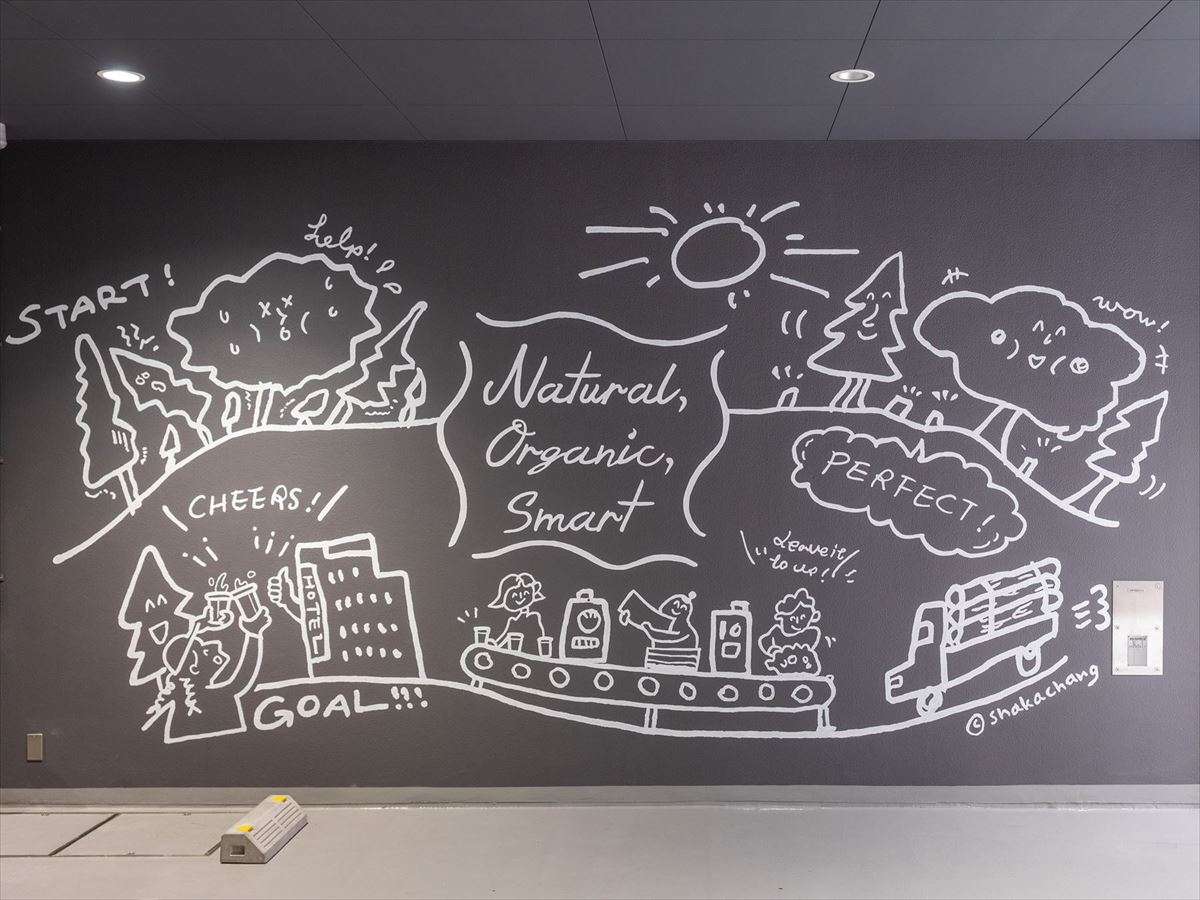 START!
help!
wow!
Natural,
Organic,
Smart
PERFECT!
Leave it
to us!!
CHEERS!
HOTEL
GOAL!!!
© shakachang